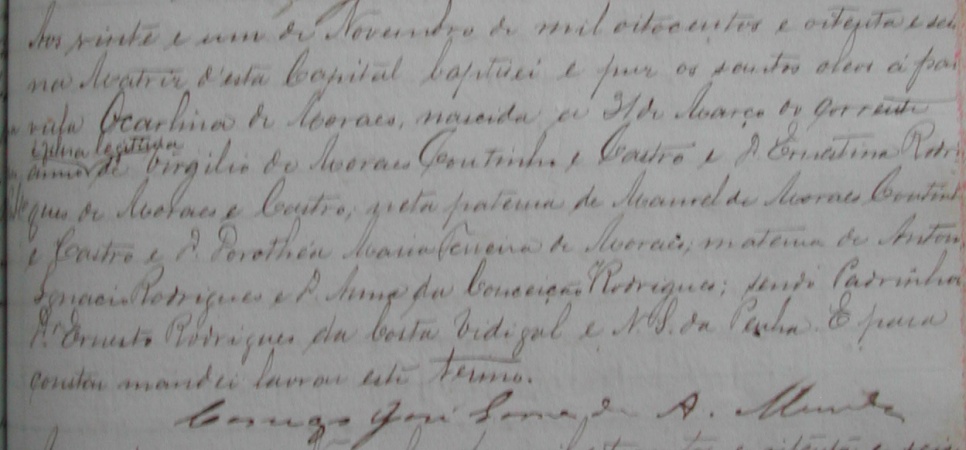 Aos vinte e um de Novembro de mil oitocentos e oitenta e seis
na Matriz d'esta Capital baptisei e puz os santos oleos á par
vula Ocarlina de Moraes, nascida a 31 de Março do corrente
filha legitima
anno, de Virgilio de Moraes Coutinho e Castro e D. Ernestina Rodri
gues de Moraes e Castro; neta paterna de Manoel de Moraes Coutinho
e Castro e D. Dorothéa Maria de Moraes; materna de Antonio
Ignacio Rodrigues e D. Anna da Conceição Rodrigues; sendo Padrinhos
Dr. Ernesto Rodrigues da Costa Vidigal e N. S. da Penha. E para
constar mandei lavrar este termo.
Conego José Gomes de A.